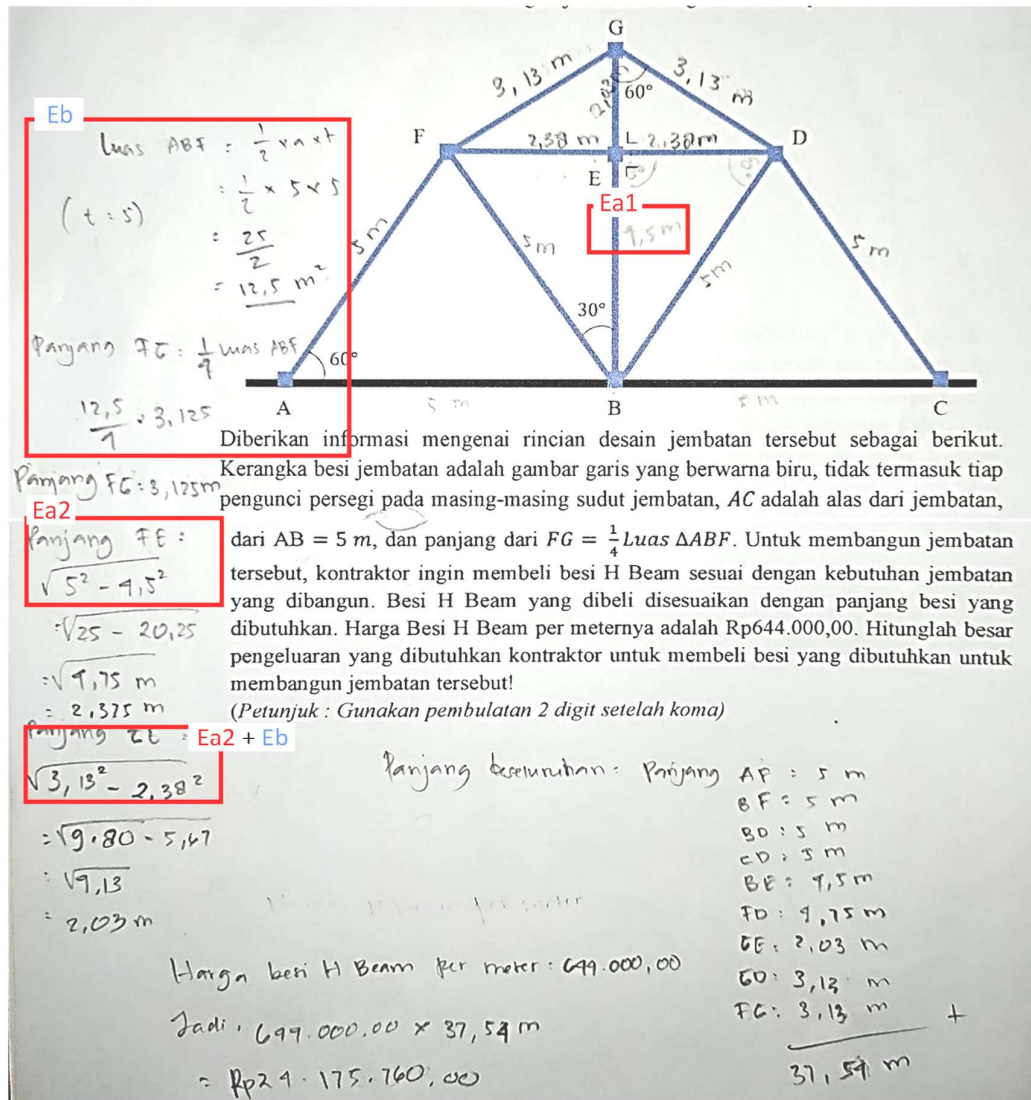 G
3,13 m
3,13 m
2,03 m
60°
Eb
F
2,38 m
2,38 m
D
E
Luas ABF : 1/2 x a x t
(t : 5)
= 1/2 x 5 x 5
= 25/2
= 12,5 m²
Ea1
4,5 m
5 m
5 m
5 m
5 m
30°
Panjang FG : 1/4 Luas ABF
60°
12,5/4 = 3,125
A
5 m
B
5 m
C
Panjang FG : 3,125 m
Diberikan informasi mengenai rincian desain jembatan tersebut sebagai berikut.
Kerangka besi jembatan adalah gambar garis yang berwarna biru, tidak termasuk tiap
pengunci persegi pada masing-masing sudut jembatan, AC adalah alas dari jembatan,
dari AB = 5 m, dan panjang dari FG = 1/4 Luas ΔABF. Untuk membangun jembatan
tersebut, kontraktor ingin membeli besi H Beam sesuai dengan kebutuhan jembatan
yang dibangun. Besi H Beam yang dibeli disesuaikan dengan panjang besi yang
dibutuhkan. Harga Besi H Beam per meternya adalah Rp644.000,00. Hitunglah besar
pengeluaran yang dibutuhkan kontraktor untuk membeli besi yang dibutuhkan untuk
membangun jembatan tersebut!
(Petunjuk : Gunakan pembulatan 2 digit setelah koma)
Ea2
Panjang FE :
√5² - 4,5²
= √25 - 20,25
= √4,75 m
= 2,375 m
Panjang GE :
Ea2 + Eb
√3,13² - 2,38²
= √9.80 - 5,67
= √4,13
= 2,03 m
Panjang keseluruhan = Panjang AF : 5 m
BF = 5 m
BD : 5 m
CD : 5 m
BE : 4,5 m
FD : 4,75 m
GE : 2,03 m
GD : 3,13 m
FG : 3,13 m +
37,54 m
Harga besi H Beam per meter : 644.000,00
Jadi, 644.000.00 x 37,54 m
= Rp24.175.760,00